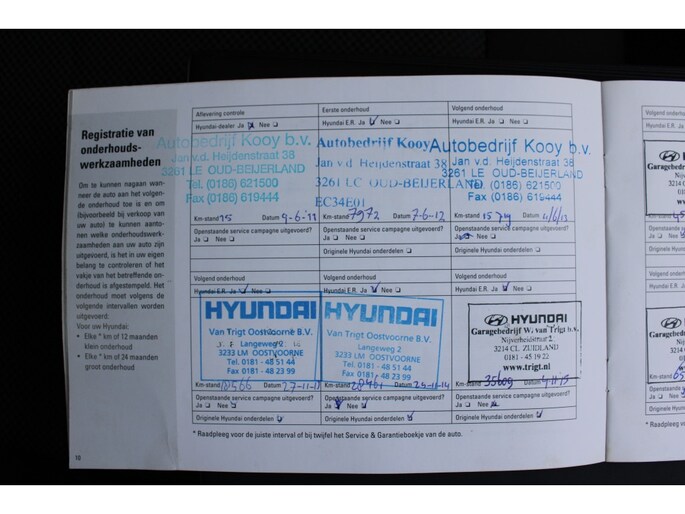 Registratie van
onderhouds-
werkzaamheden
Om te kunnen nagaan wan-
neer de auto aan het volgen-
de onderhoud toe is en om
(bijvoorbeeld bij verkoop van
uw auto) te kunnen aanto-
nen welke onderhoudswerk-
zaamheden aan uw auto zijn
uitgevoerd, is het in uw eigen
belang te controleren of het
vakje van het betreffende on-
derhoud is afgestempeld. Het
onderhoud moet volgens de
volgende intervallen worden
uitgevoerd:
Voor uw Hyundai:
• Elke * km of 12 maanden
klein onderhoud
• Elke * km of 24 maanden
groot onderhoud
10
Aflevering controle
Hyundai-dealer Ja Nee
Autobedrijf Kooy b.v.
Jan v.d. Heijdenstraat 38
3261 LE OUD-BEIJERLAND
Tel. (0186) 621500
Fax (0186) 619444
Km-stand 15 Datum 9-6-11
Openstaande service campagne uitgevoerd?
Ja Nee
Eerste onderhoud
Hyundai E.R. Ja Nee
Autobedrijf Kooy
Jan v.d. Heijdenstraat 38
3261 LC OUD-BEIJERLAND
EC34E01
Km-stand 7972 Datum 7-6-12
Openstaande service campagne uitgevoerd?
Ja Nee
Originele Hyundai onderdelen
Volgend onderhoud
Hyundai E.R. Ja Nee
Autobedrijf Kooy b.v.
Jan v.d. Heijdenstraat 38
3261 LE OUD-BEIJERLAND
Tel. (0186) 621500
Fax (0186) 619444
Km-stand Datum
Openstaande service campagne uitgevoerd?
Ja Nee
Originele Hyundai onderdelen
Volgend onderhoud
Hyundai E.R. Ja Nee
HYUNDAI
Van Trigt Oostvoorne B.V.
Langeweg
3233 LM OOSTVOORNE
Tel. 0181 - 48 51 44
Fax 0181 - 48 23 99
Km-stand Datum
Openstaande service campagne uitgevoerd?
Ja Nee
Originele Hyundai onderdelen
Volgend onderhoud
Hyundai E.R. Ja Nee
HYUNDAI
Van Trigt Oostvoorne B.V.
Langeweg 2
3233 LM OOSTVOORNE
Tel. 0181 - 48 51 44
Fax 0181 - 48 23 99
Km-stand Datum
Openstaande service campagne uitgevoerd?
Ja Nee
Originele Hyundai onderdelen
Volgend onderhoud
Hyundai E.R. Ja Nee
HYUNDAI
Garagebedrijf W. van Trigt b.v.
Nijverheidstraat 2
3214 CL ZUIDLAND
0181 - 45 19 22
www.trigt.nl
Km-stand 35609 Datum
Openstaande service campagne uitgevoerd?
Ja Nee
Originele Hyundai onderdelen
* Raadpleeg voor de juiste interval of bij twijfel het Service & Garantieboekje van de auto.
Volgend onderhoud
Hyundai E.R. Ja
Garagebedrijf
Nijver
3214 C
Km-stand
Openstaande ser
Ja Nee
Originele Hyund
Volgend onderho
Hyundai E.R. Ja
Garagebedrij
Nijv
3214
Km-stand
Openstaande se
Ja Nee
Originele Hyund
* Raadpleeg vo